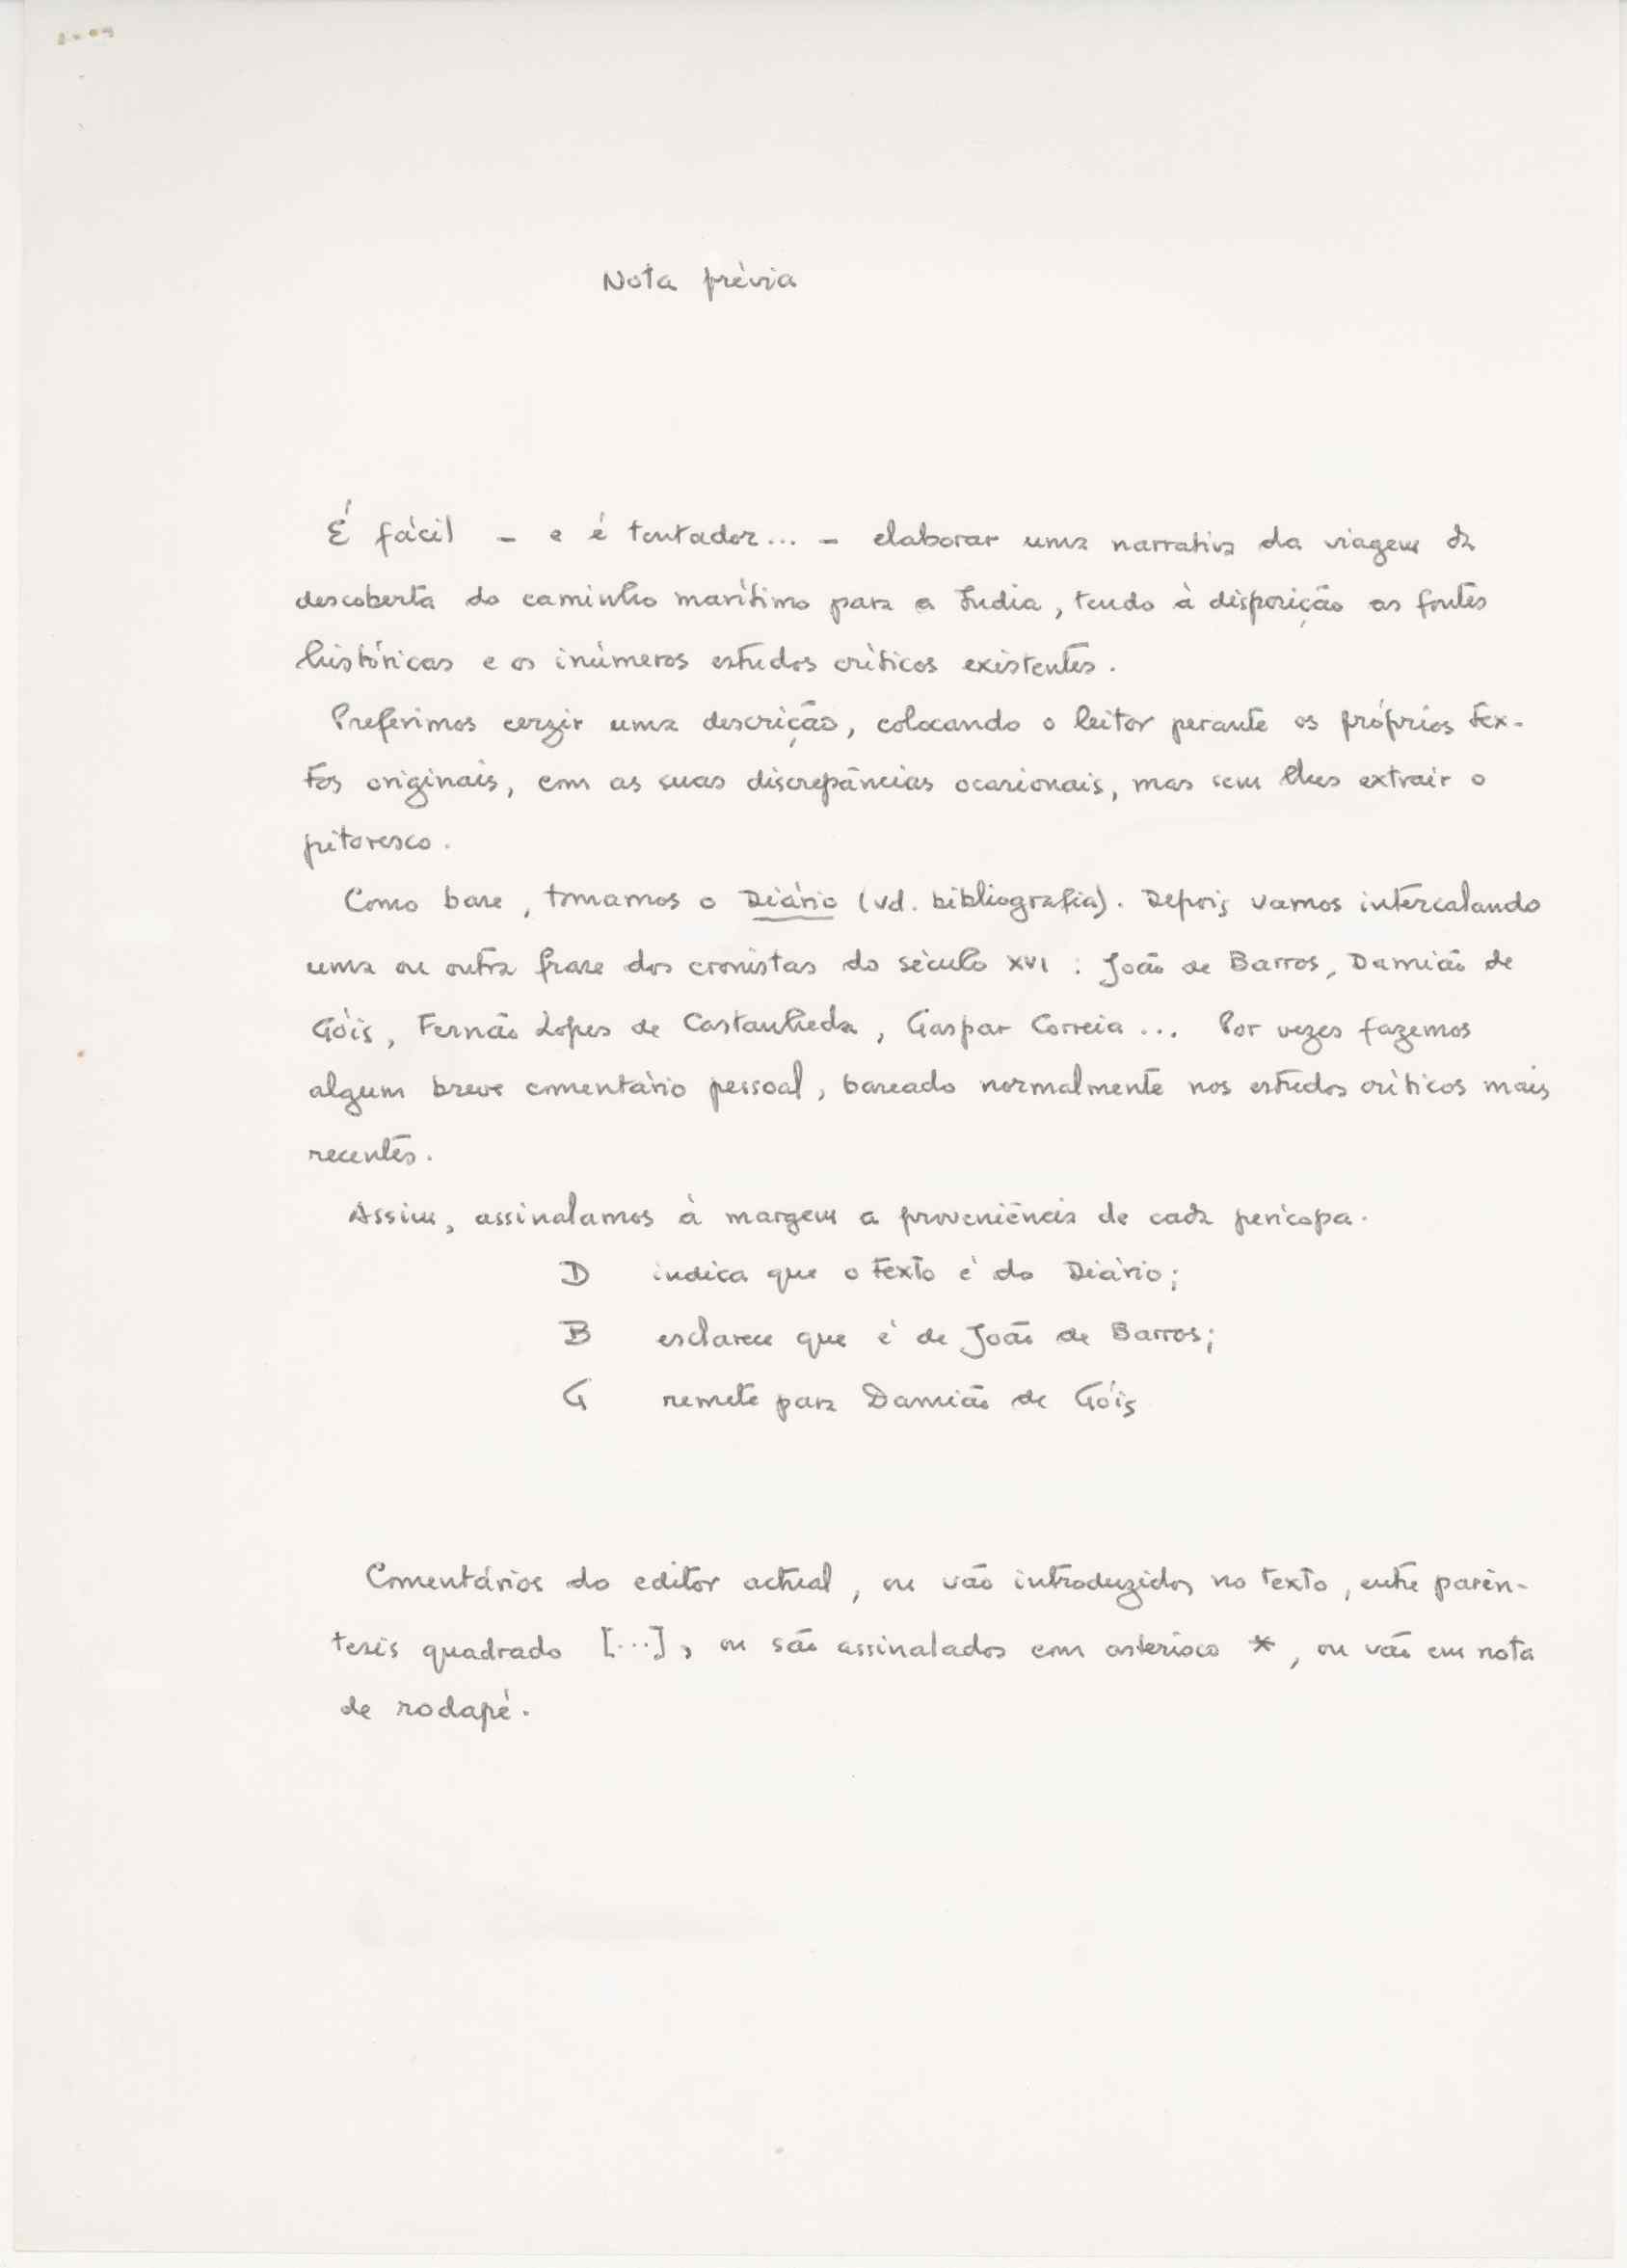 Nota prévia
É fácil – e é tentador... – elaborar uma narrativa da viagem da
descoberta do caminho marítimo para a Índia, tendo à disposição as fontes
históricas e os inúmeros estudos críticos existentes.
Preferimos cerzir uma descrição, colocando o leitor perante os próprios tex-
tos originais, com as suas discrepâncias ocasionais, mas sem lhes extrair o
pitoresco.
Como base, tomamos o Diário (vd. bibliografia). Depois vamos intercalando
uma ou outra frase dos cronistas do século XVI : João de Barros, Damião de
Góis, Fernão Lopes de Castanheda, Gaspar Correia ... Por vezes fazemos
algum breve comentário pessoal, baseado normalmente nos estudos críticos mais
recentes.
Assim, assinalamos à margem a proveniência de cada perícopa.
D indica que o texto é do Diário;
B esclarece que é de João de Barros;
G remete para Damião de Góis
Comentários do editor actual, ou vão introduzidos no texto, entre parên-
tesis quadrado [...], ou são assinalados com asterisco *, ou vão em nota
de rodapé.